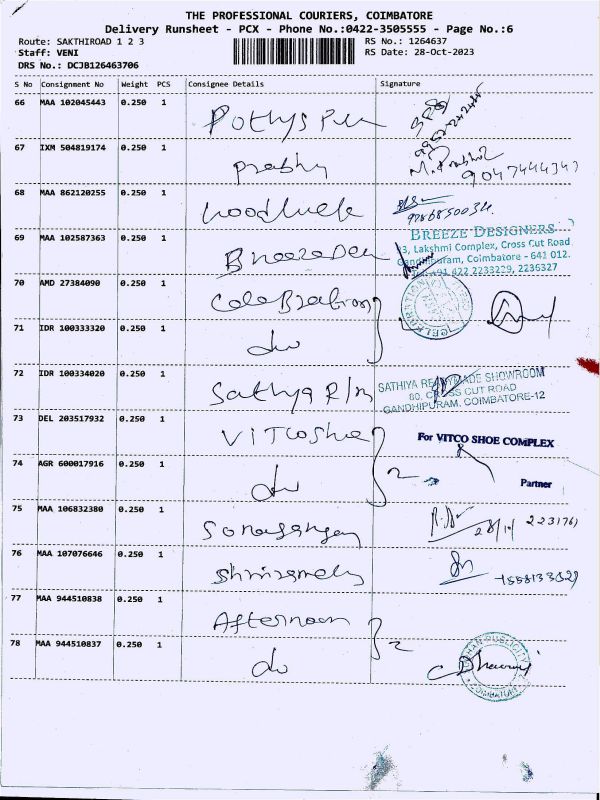 THE PROFESSIONAL COURIERS, COIMBATORE
Delivery Runsheet - PCX - Phone No.:0422-3505555 - Page No.:6
Route: SAKTHIROAD 1 2 3 RS No.: 1264637
Staff: VENI RS Date: 28-Oct-2023
DRS No.: DCJB126463706
S No Consignment No Weight PCS Consignee Details Signature
66 MAA 102045443 0.250 1 Pothys
67 IXM 504819174 0.250 1 prabhu 9047444343
68 MAA 862120255 0.250 1 Goodluck
69 MAA 102587363 0.250 1 BREEZE DESIGNERS
3, Lakshmi Complex, Cross Cut Road
Gandhipuram, Coimbatore - 641 012.
+91 422 2233229, 2236327
70 AMD 27384090 0.250 1 Celebration
71 IDR 100333320 0.250 1 do
72 IDR 100334020 0.250 1 Sathya R/m SATHIYA READYMADE SHOWROOM
80, CROSS CUT ROAD
GANDHIPURAM, COIMBATORE-12
73 DEL 203517932 0.250 1 VITCO Shoe For VITCO SHOE COMPLEX
74 AGR 600017916 0.250 1 do 2 Partner
75 MAA 106832380 0.250 1
76 MAA 107076646 0.250 1
77 MAA 944510838 0.250 1 Afternoon
78 MAA 944510837 0.250 1 do 2